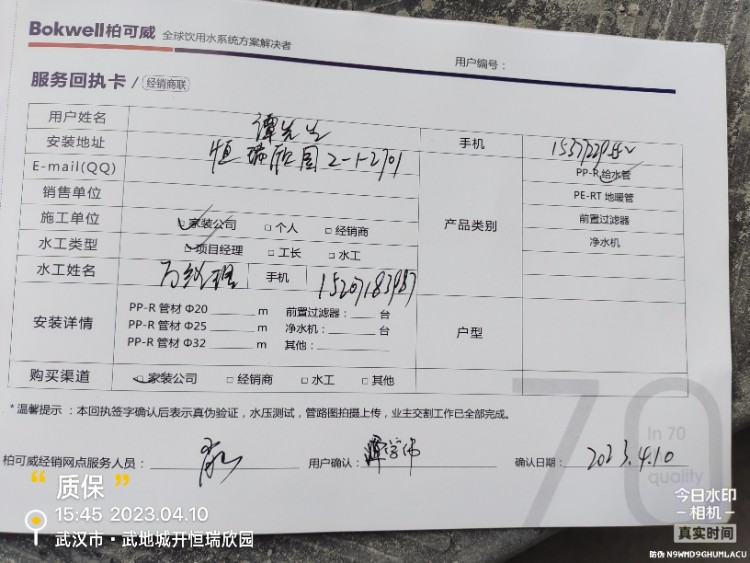 Bokwell柏可威 全球饮用水系统方案解决者
用户编号：
服务回执卡 / 经销商联
用户姓名 谭先生 手机
安装地址 恒瑞欣园2-1-2701
E-mail(QQ) 产品类别 PP-R 给水管
销售单位 PE-RT 地暖管
施工单位 家装公司 □ 个人 □ 经销商 前置过滤器
水工类型 项目经理 □ 工长 □ 水工 净水机
水工姓名 经理 手机 15207183987
安装详情 户型
PP-R 管材 Φ20 m 前置过滤器： 台
PP-R 管材 Φ25 m 净水机： 台
PP-R 管材 Φ32 m 其他：
购买渠道 家装公司 □ 经销商 □ 水工 □ 其他
*温馨提示：本回执签字确认后表示真伪验证，水压测试，管路图拍摄上传，业主交割工作已全部完成。
柏可威经销网点服务人员： 用户确认： 确认日期：2023.4.10
70
In 70
quality
“ 质保 ”
15:45 2023.04.10
武汉市 · 武地城开恒瑞欣园
今日水印
-相机-
真实时间
防伪 N9WMD9GHUMLACU